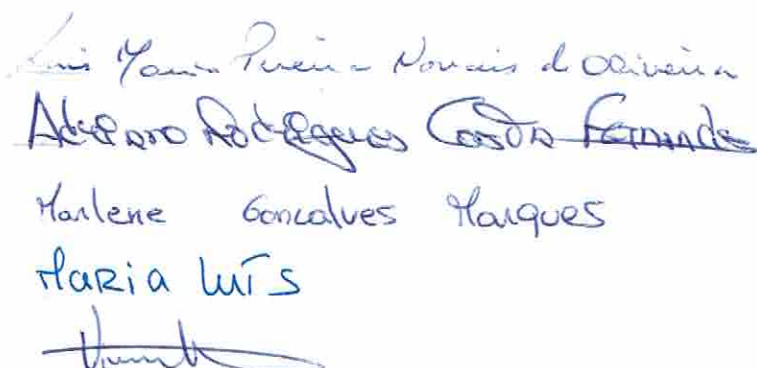 Luis Maria Pereira Novais d Oliveira
Rodrigues Costa Fernandes
Marlene Goncalves Marques
Maria Luís